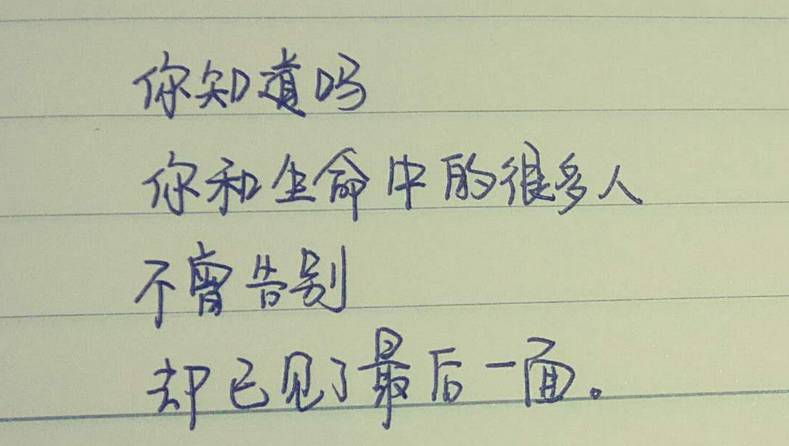 你知道吗
你和生命中的很多人
不曾告别
却已见了最后一面。